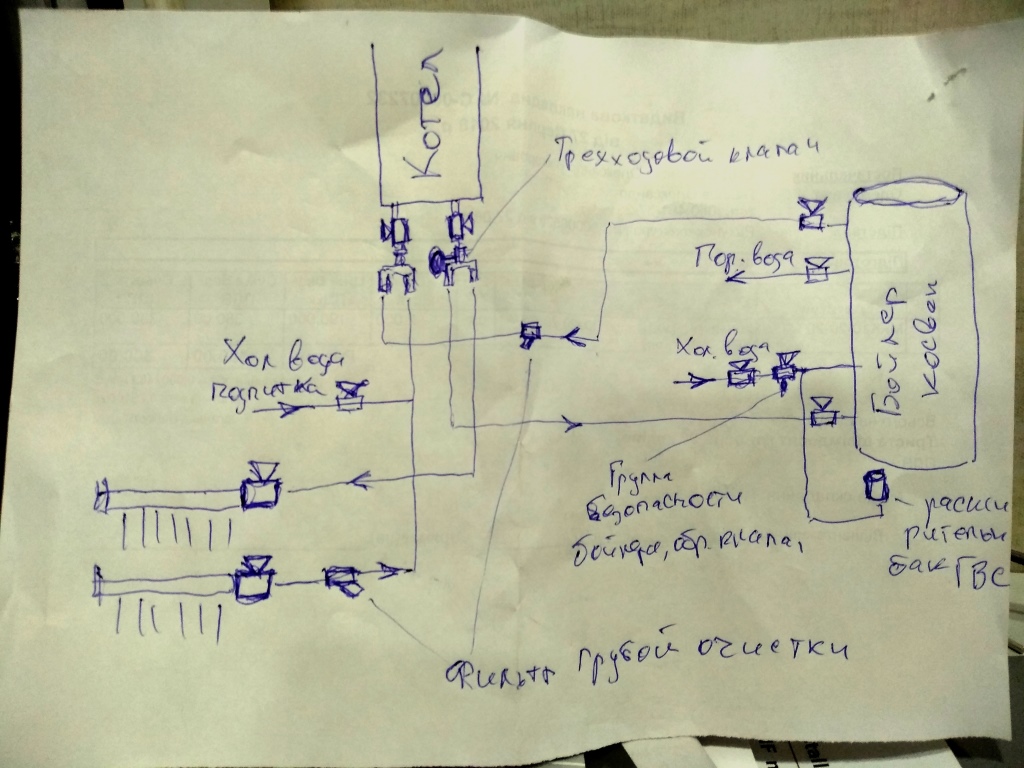 Котел
Трехходовой клапан
Гор. вода
Хол. вода
Бойлер
косвен
Хол. вода
подпитка
Группа
безопасности
бойлера, обр. клапан
расши
рительн
бак ГВС
Фильтр грубой очистки